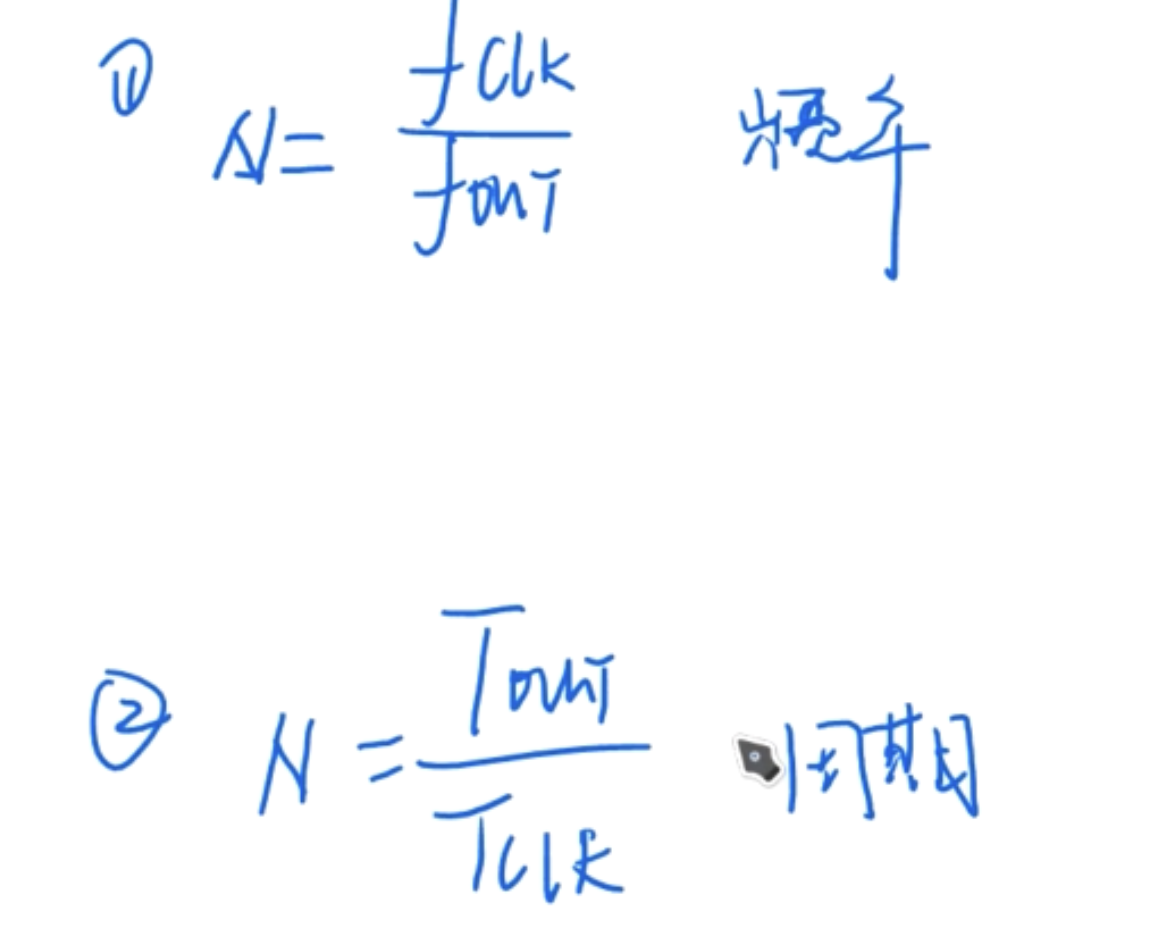 ① N = fCLK / fOUT 频率
② N = TOUT / TCLK 周期